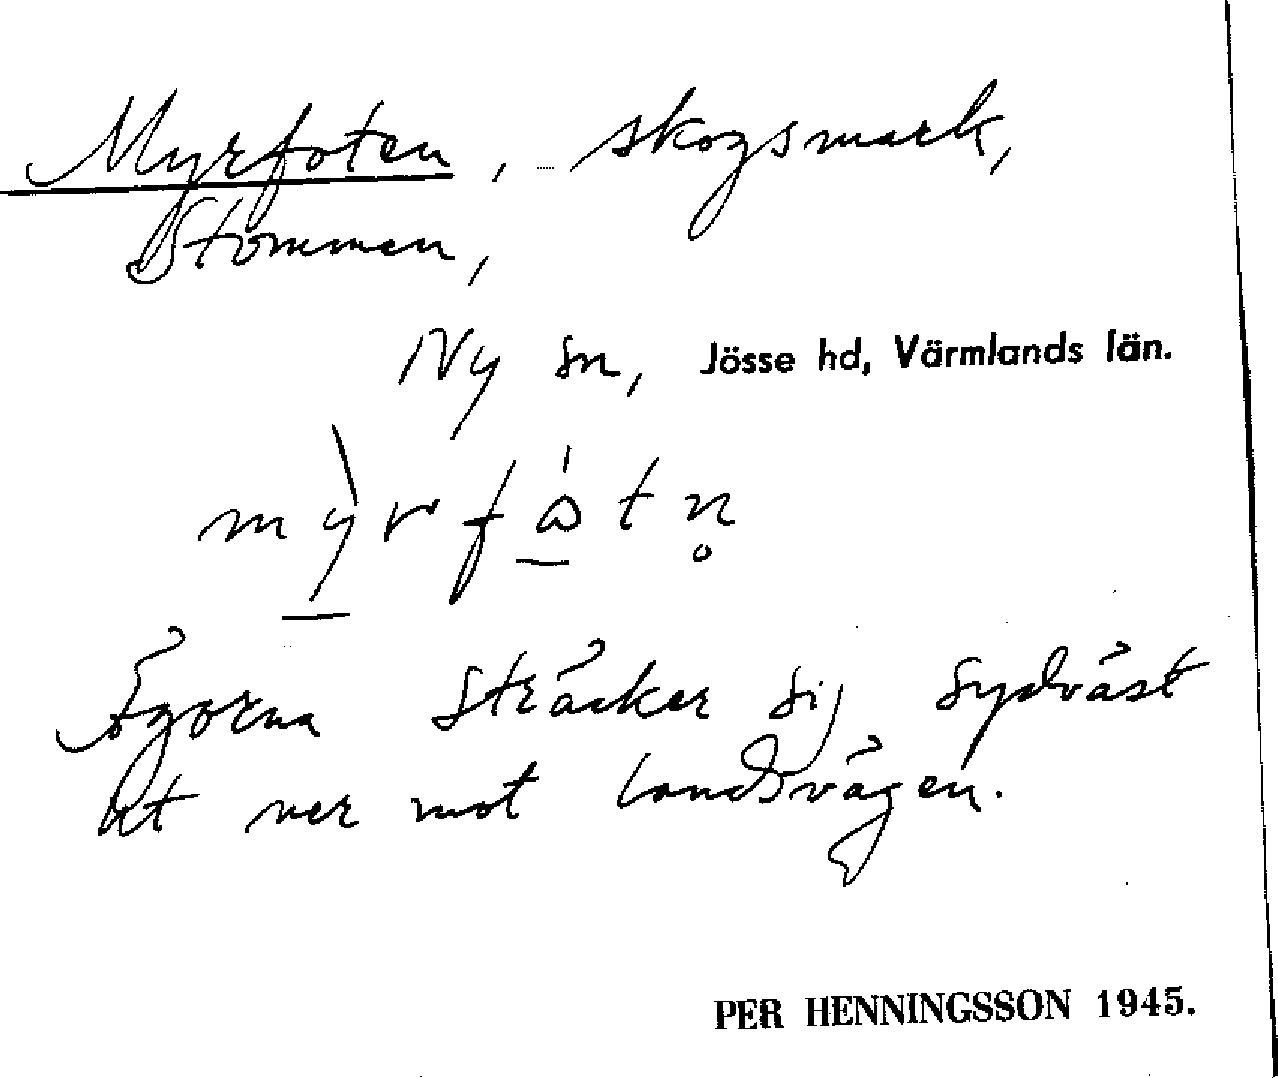 Myrfoten, skogsmark,
Stommen,
Ny sn, Jösse hd, Värmlands län.
mỳrfåtn̥
Ägorna sträcker sig sydväst
ut ner mot landsvägen.
PER HENNINGSSON 1945.